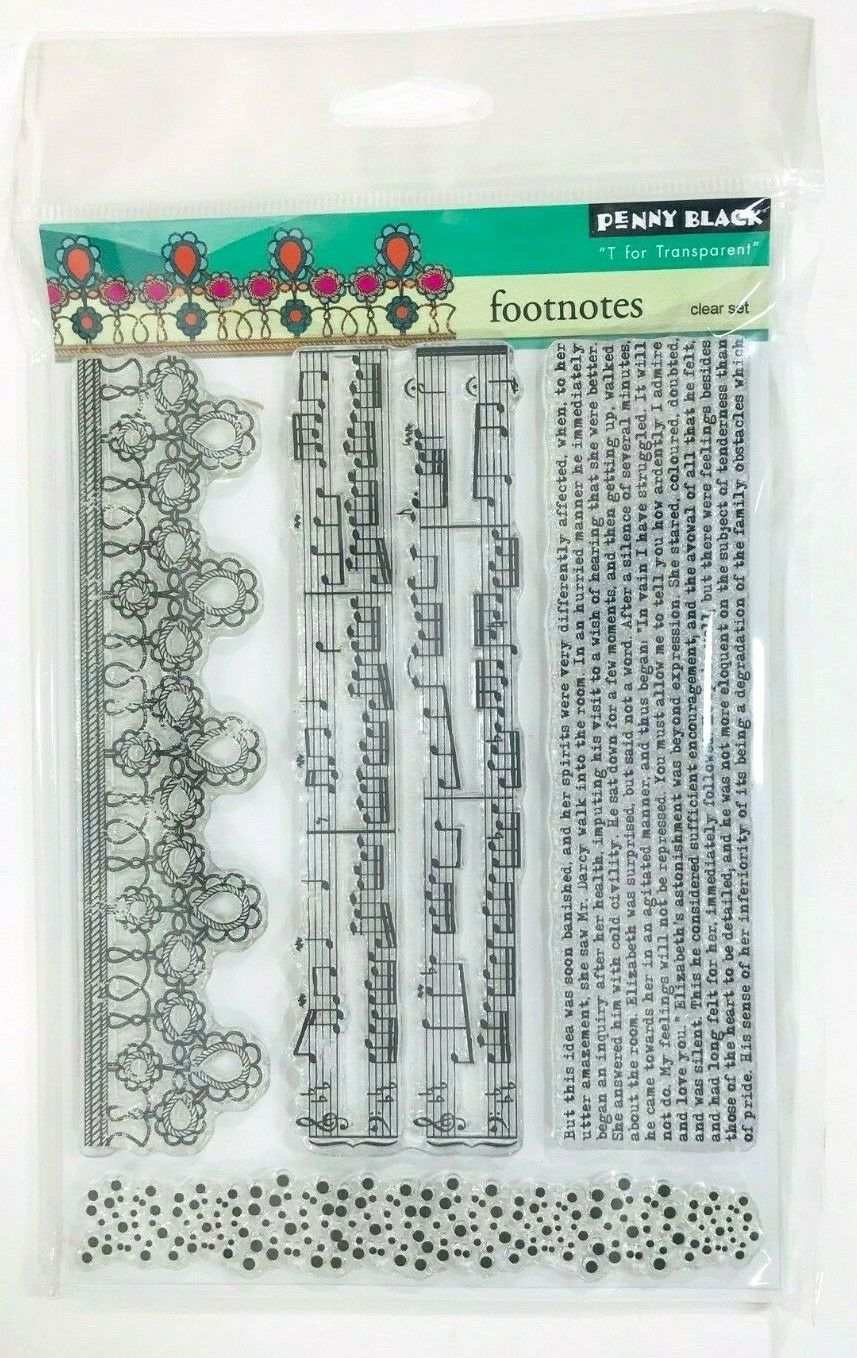 PENNY BLACK
"T for Transparent"
footnotes
clear set
But this idea was soon banished, and her spirits were very differently affected, when, to her
utter amazement, she saw Mr. Darcy walk into the room. In an hurried manner he immediately
began an inquiry after her health, imputing his visit to a wish of hearing that she were better.
She answered him with cold civility. He sat down for a few moments, and then getting up, walked
about the room. Elizabeth was surprised, but said not a word. After a silence of several minutes,
he came towards her in an agitated manner, and thus began: "In vain I have struggled. It will
not do. My feelings will not be repressed. You must allow me to tell you how ardently I admire
and love you." Elizabeth's astonishment was beyond expression. She stared, coloured, doubted,
and was silent. This he considered sufficient encouragement, and the avowal of all that he felt,
and had long felt for her, immediately followed. but there were feelings besides
those of the heart to be detailed, and he was not more eloquent on the subject of tenderness than
of pride. His sense of her inferiority of its being a degradation of the family obstacles which